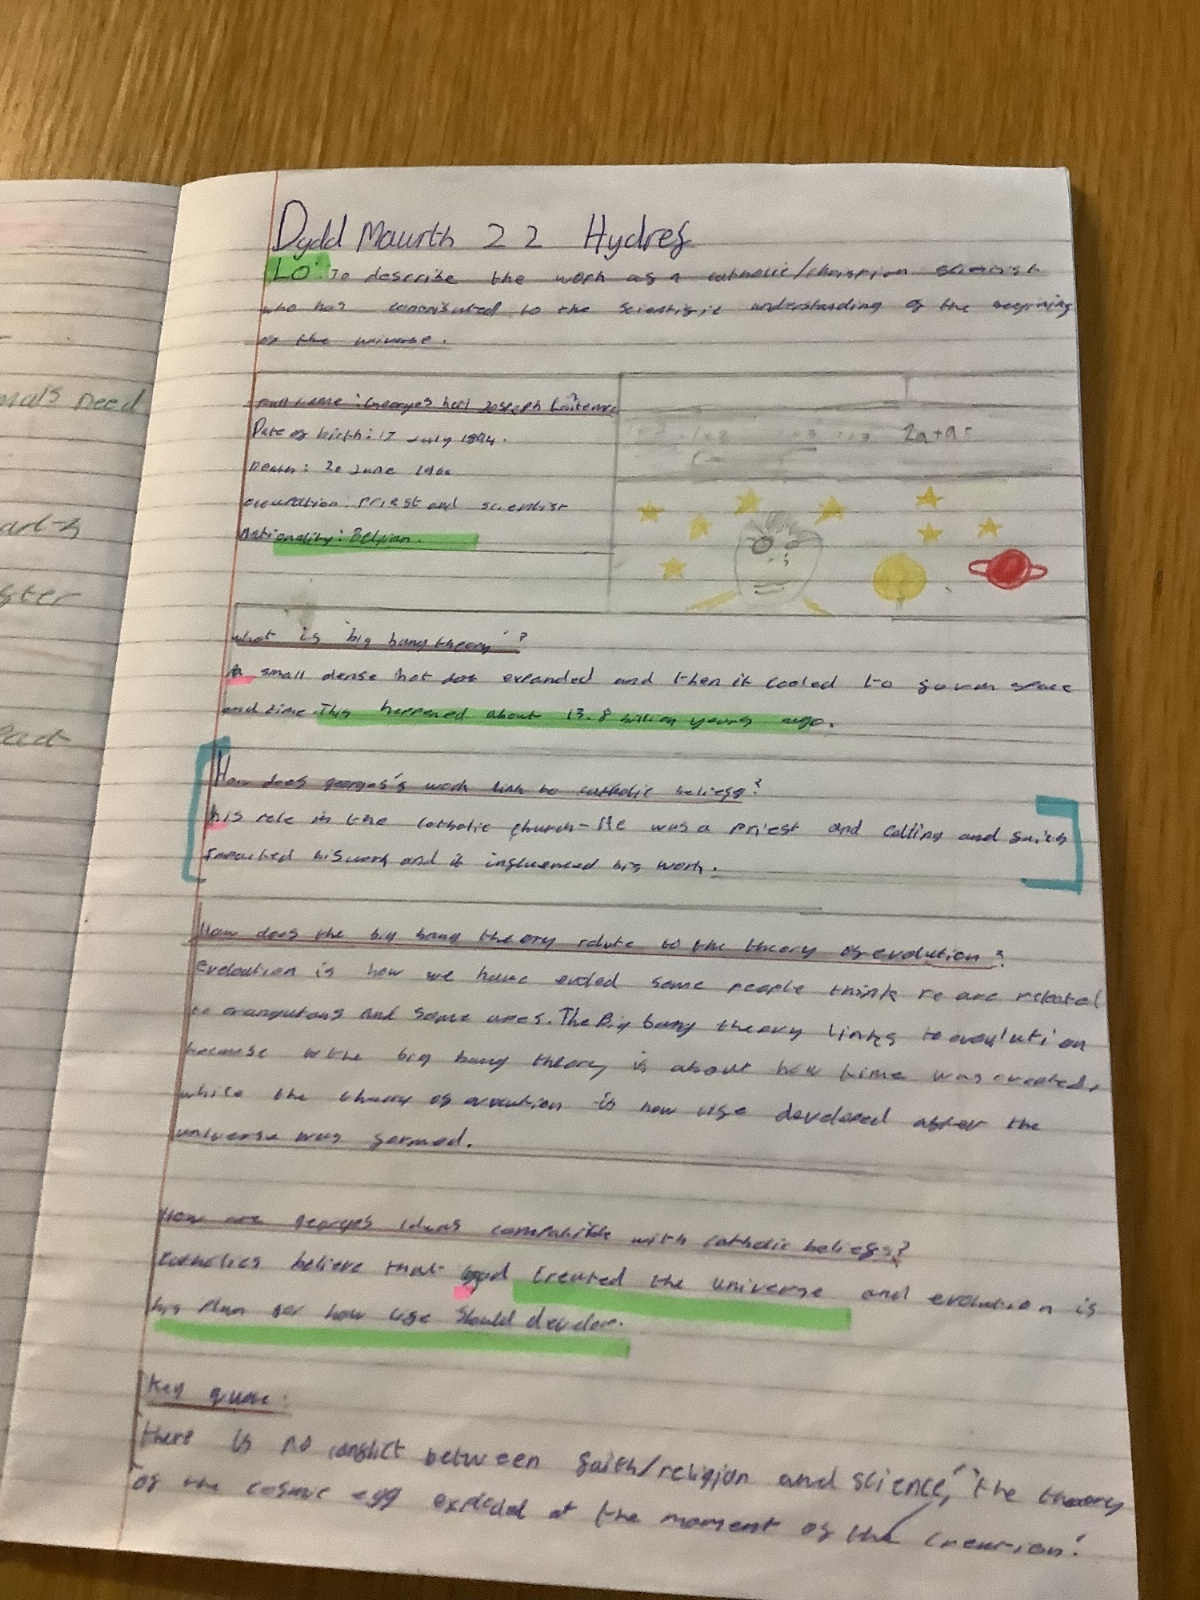 Dydd Maurth 22 Hydref
LO: To describe the work as a catholic/christian scientist
who has contributed to the scientific understanding of the begining
of the universe.
Full name: Georges Joseph
Date of birth: 17 July 1894.
Death: 20 June
occupation: Priest and scientist
Nationality: Belgian.
2a+a=
What is 'big bang theory'?
A small dense hot dot expanded and then it cooled to form space
and time. This happened about 13.8 billion years ago.
How does georges's work link to catholic beliefs?
his role in the catholic church - He was a priest and calling and faith
impacted his work and it influenced his work.
How does the big bang theory relate to the theory of evolution?
Evoloution is how we have some people think are related
to orangutans and some apes. The Big bang theory links to
because the big bang theory is about how time was created,
while the theory of is how life developed after the
universe was formed.
How are georges ideas compatible with catholic beliefs?
Catholics believe that god created the universe and evolution is
his plan for how life should develop.
Key quote:
there is no conflict between faith/religion and science, "the theory
of the cosmic egg at the moment of the creation!
mals need